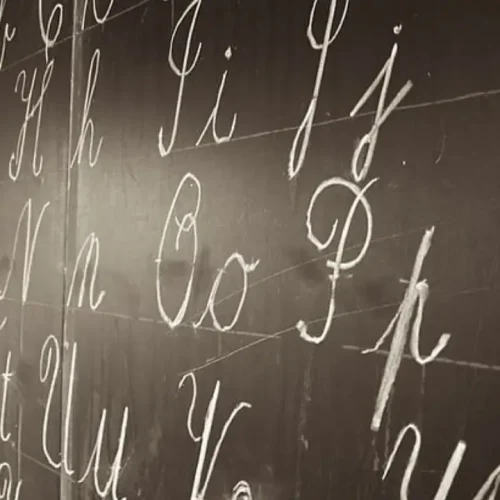 H h I i J j
N n O o P p
t U u V